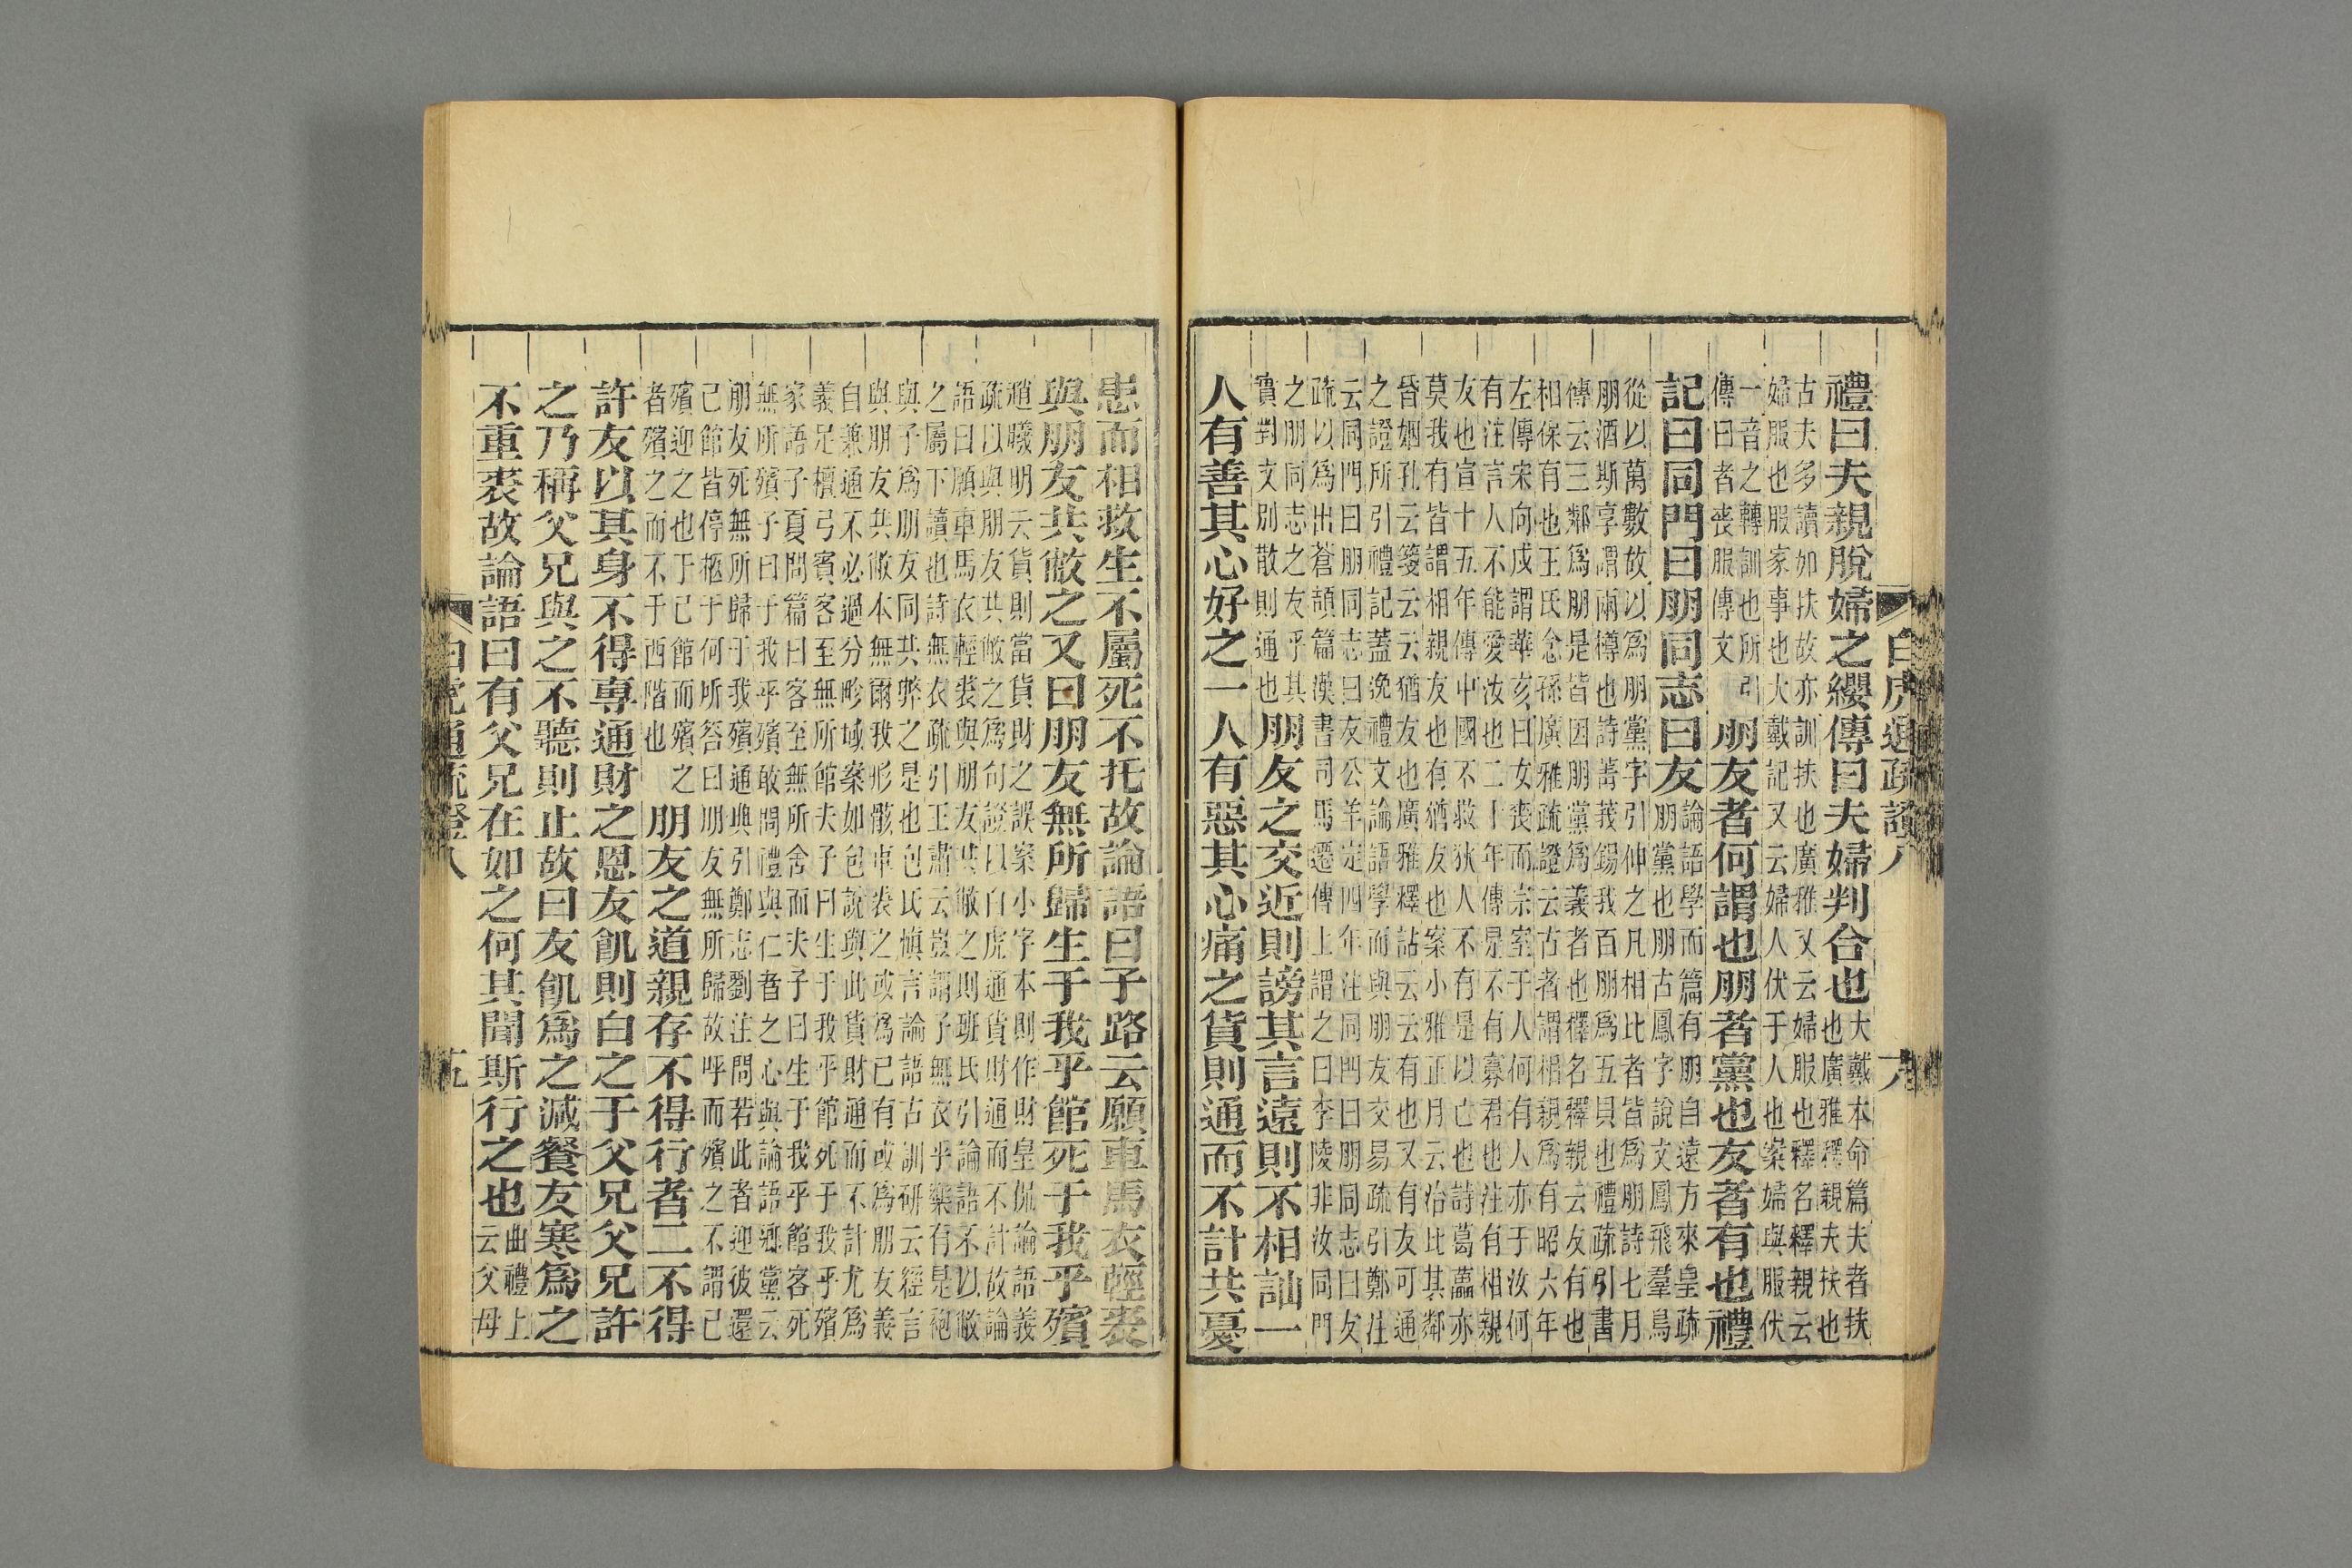 白虎通疏證八 六
禮曰夫親脫婦之纓傳曰夫婦判合也大戴本命篇夫者扶
也廣雅釋親夫扶也
古夫多讀如扶故亦訓扶也廣雅又云婦服也釋名釋親云
婦服也服家事也大戴記又云婦人伏于人也案婦與服伏
一音之轉訓也所引
傳曰者喪服傳文
朋友者何謂也朋者黨也友者有也禮
記曰同門曰朋同志曰友論語學而篇有朋自遠方來皇疏
朋黨也朋古鳳字說文鳳飛羣鳥
從以萬數故以爲朋黨字引伸之凡相比者皆爲朋詩七月
朋酒斯享謂兩樽也詩菁莪錫我百朋爲五貝也禮疏引書
傳云三鄰爲朋是皆因朋黨爲義者也釋名釋親云友有也
相保有也王氏念孫廣雅疏證云古者謂相親爲有昭六年
左傳宋向戌謂華亥曰女喪而宗室于人何有人亦于汝何
有注言人不能愛汝也二十年傳是不有寡君也注有相親
友也宣十五年傳中國不救狄人不有是以亡也詩葛藟亦
莫我有皆謂相親友也有猶友也案小雅正月云洽比其鄰
昏姻孔云箋云云猶友也廣雅釋詁云云有也又有友可通
之證所引禮記蓋逸禮文論語學而與朋友交易疏引鄭注
云同門曰朋同志曰友公羊定四年注同門曰朋同志曰友
疏以爲出蒼頡篇漢書司馬遷傳上謂之曰李陵非汝同門
之朋同志之友乎其
實對文別散則通也
朋友之交近則謗其言遠則不相訕一
人有善其心好之一人有惡其心痛之貨則通而不計共憂
患而相救生不屬死不托故論語曰子路云願車馬衣輕裘
與朋友共敝之又曰朋友無所歸生于我乎館死于我乎殯
趙曦明云貨則當貨財之誤案小字本則作財皇侃論語義
疏以與朋友共敝之爲句證以白虎通貨財通而不計故論
語曰願車馬衣輕裘與朋友共敝之則班氏引論語不以敝
之屬下讀也詩無衣疏引王肅云豈謂子無衣乎樂有是袍
與子爲朋友同共弊之是也包氏愼言論語古訓研云經言
與朋友共敝本無爾我形骸車裘之或爲已有或爲朋友義
自兼通不必過分畛域案如包說與此貨財通而不計尤爲
義足檀弓賓客至無所館夫子曰生于我乎館死于我乎殯
家語子夏問篇曰客至無所舍而夫子曰生于我乎館客死
無所殯子曰于我乎殯敢問禮與仁者之心與論語鄉黨云
朋友死無所歸于我殯通典引鄭志劉注問若此者迎彼還
己館皆停柩于何所答曰朋友無所歸故呼而殯之不謂己
殯迎之也于己館而殯之
者殯之而不于西階也
朋友之道親存不得行者二不得
許友以其身不得專通財之恩友飢則白之于父兄父兄許
之乃稱父兄與之不聽則止故曰友飢爲之減餐友寒爲之
不重裘故論語曰有父兄在如之何其聞斯行之也曲禮上
云父母
白虎通疏證八